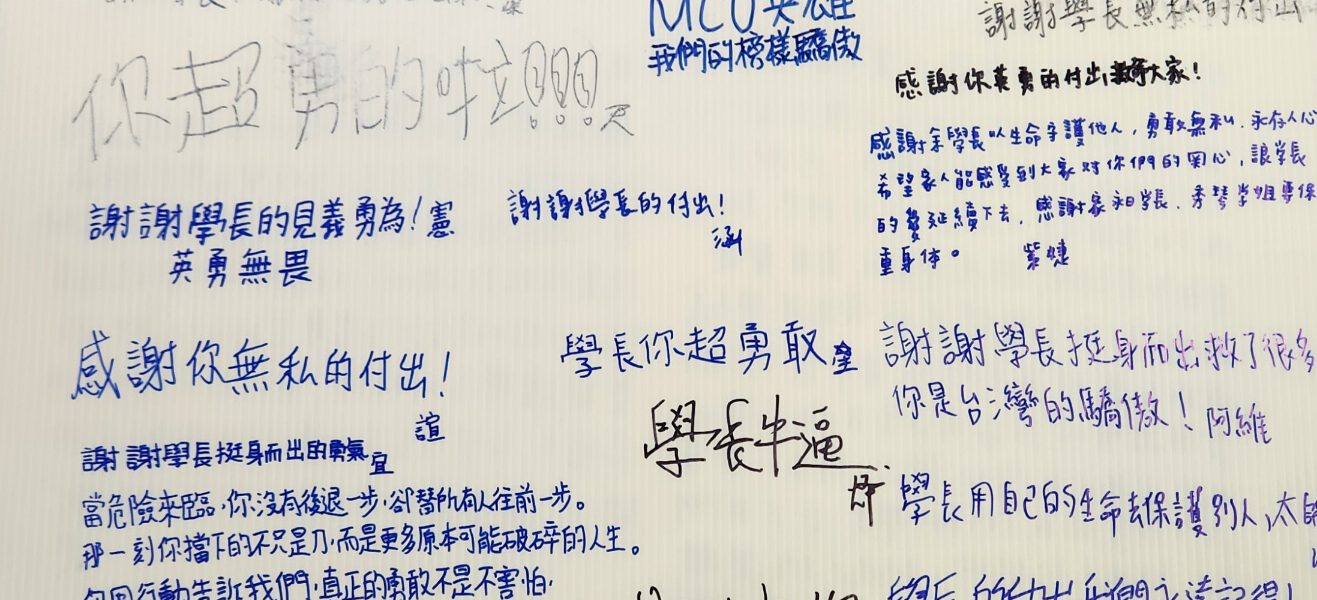 MCU英雄
我們的榜樣驕傲
謝謝學長無私的付出
你超勇的啦!!!
感謝你英勇的付出救大家!
感謝余學長以生命守護他人,勇敢無私.永存人心
希望家人能感受到大家對你們的関心,讓学長
的愛延續下去,感謝家昶学長、秀琴学姐要保
重身体。
謝謝學長的見義勇為!憲
英勇無畏
謝謝學長的付出!
涵
感謝你無私的付出!
誼
學長你超勇敢
謝謝學長挺身而出救了很多
你是台灣的驕傲!阿維
學長牛逼
謝謝學長挺身而出的勇氣 宜
當危險來臨,你沒有後退一步,卻替所有人往前一步。
那一刻你擋下的不只是刀,而是更多原本可能破碎的人生。
行動告訴我們,真正的勇敢不是不害怕,
學長用自己的生命去保護別人,太
學長的付出我們永遠記得!